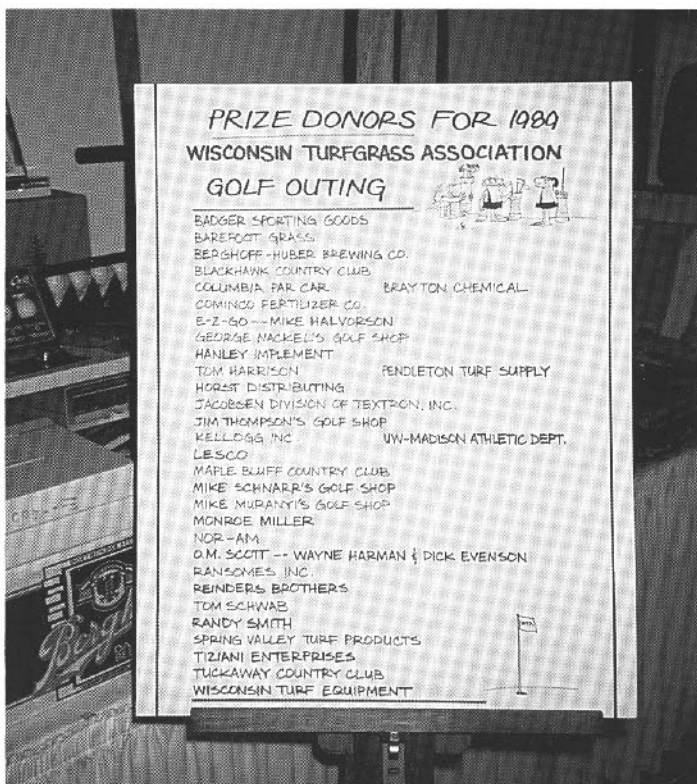 PRIZE DONORS FOR 1989
WISCONSIN TURFGRASS ASSOCIATION
GOLF OUTING
BADGER SPORTING GOODS
BAREFOOT GRASS
BERGHOFF-HUBER BREWING CO.
BLACKHAWK COUNTRY CLUB
COLUMBIA PAR CAR BRAYTON CHEMICAL
COMINCO FERTILIZER CO.
E-Z-GO -- MIKE HALVORSON
GEORGE NACKEL'S GOLF SHOP
HANLEY IMPLEMENT
TOM HARRISON PENDLETON TURF SUPPLY
HORST DISTRIBUTING
JACOBSEN DIVISION OF TEXTRON, INC.
JIM THOMPSON'S GOLF SHOP
KELLOGG INC UW-MADISON ATHLETIC DEPT.
LESCO
MAPLE BLUFF COUNTRY CLUB
MIKE SCHNARR'S GOLF SHOP
MIKE MURANYI'S GOLF SHOP
MONROE MILLER
NOR-AM
O.M. SCOTT -- WAYNE HARMAN & DICK EVENSON
RANSOMES INC.
REINDERS BROTHERS
TOM SCHWAB
RANDY SMITH
SPRING VALLEY TURF PRODUCTS
TIZIANI ENTERPRISES
TUCKAWAY COUNTRY CLUB
WISCONSIN TURF EQUIPMENT